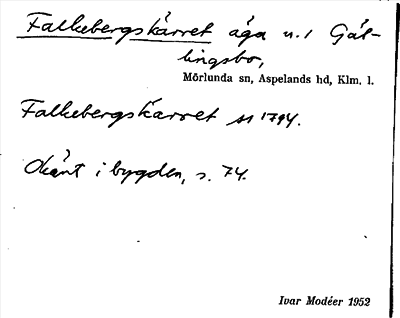 Falkebergskärret äga n. 1 Gät-
lingsbo,
Mörlunda sn, Aspelands hd, Klm. l.
Falkebergskärret 1794.
Okänt i bygden, s. 74.
Ivar Modéer 1952